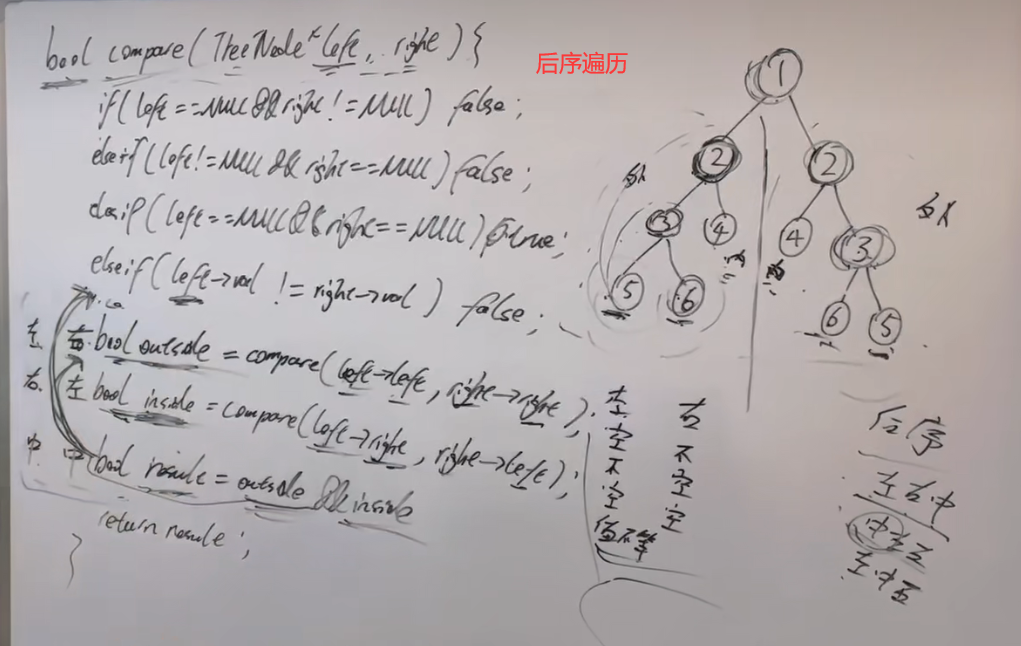 bool compare(TreeNode* left, right){
后序遍历
if(left==NULL&&right!=NULL) false;
elseif(left!=NULL&&right==NULL) false;
elseif(left==NULL&&right==NULL) true;
elseif(left->val != right->val) false;
左 右 bool outside = compare(left->left, right->right);
右 左 bool inside = compare(left->right, right->left);
中 中 bool result = outside && inside
return result;
}
1
2 2
3 4 4 3
5 6 6 5
左 右
空 不
空
不 空
空
值不等
后序
左右中
中左右
左中右